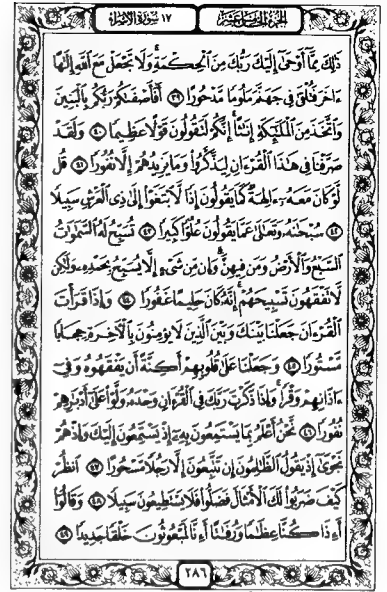 الجزء الخامس عشر
١٧ سورة الإسراء
ذَٰلِكَ مِمَّآ أَوْحَىٰٓ إِلَيْكَ رَبُّكَ مِنَ ٱلْحِكْمَةِ ۗ وَلَا تَجْعَلْ مَعَ ٱللَّهِ إِلَٰهًا
ءَاخَرَ فَتُلْقَىٰ فِي جَهَنَّمَ مَلُومًا مَّدْحُورًا ٣٩ أَفَأَصْفَىٰكُمْ رَبُّكُم بِٱلْبَنِينَ
وَٱتَّخَذَ مِنَ ٱلْمَلَٰٓئِكَةِ إِنَٰثًا ۚ إِنَّكُمْ لَتَقُولُونَ قَوْلًا عَظِيمًا ٤٠ وَلَقَدْ
صَرَّفْنَا فِي هَٰذَا ٱلْقُرْءَانِ لِيَذَّكَّرُوا۟ وَمَا يَزِيدُهُمْ إِلَّا نُفُورًا ٤١ قُل
لَّوْ كَانَ مَعَهُۥٓ ءَالِهَةٌ كَمَا يَقُولُونَ إِذًا لَّٱبْتَغَوْا۟ إِلَىٰ ذِي ٱلْعَرْشِ سَبِيلًا
٤٢ سُبْحَٰنَهُۥ وَتَعَٰلَىٰ عَمَّا يَقُولُونَ عُلُوًّا كَبِيرًا ٤٣ تُسَبِّحُ لَهُ ٱلسَّمَٰوَٰتُ
ٱلسَّبْعُ وَٱلْأَرْضُ وَمَن فِيهِنَّ ۚ وَإِن مِّن شَيْءٍ إِلَّا يُسَبِّحُ بِحَمْدِهِۦ وَلَٰكِن
لَّا تَفْقَهُونَ تَسْبِيحَهُمْ ۗ إِنَّهُۥ كَانَ حَلِيمًا غَفُورًا ٤٤ وَإِذَا قَرَأْتَ
ٱلْقُرْءَانَ جَعَلْنَا بَيْنَكَ وَبَيْنَ ٱلَّذِينَ لَا يُؤْمِنُونَ بِٱلْءَاخِرَةِ حِجَابًا
مَّسْتُورًا ٤٥ وَجَعَلْنَا عَلَىٰ قُلُوبِهِمْ أَكِنَّةً أَن يَفْقَهُوهُ وَفِيٓ
ءَاذَانِهِمْ وَقْرًا ۚ وَإِذَا ذَكَرْتَ رَبَّكَ فِي ٱلْقُرْءَانِ وَحْدَهُۥ وَلَّوْا۟ عَلَىٰٓ أَدْبَٰرِهِمْ
نُفُورًا ٤٦ نَّحْنُ أَعْلَمُ بِمَا يَسْتَمِعُونَ بِهِۦٓ إِذْ يَسْتَمِعُونَ إِلَيْكَ وَإِذْ هُمْ
نَجْوَىٰٓ إِذْ يَقُولُ ٱلظَّٰلِمُونَ إِن تَتَّبِعُونَ إِلَّا رَجُلًا مَّسْحُورًا ٤٧ ٱنظُرْ
كَيْفَ ضَرَبُوا۟ لَكَ ٱلْأَمْثَالَ فَضَلُّوا۟ فَلَا يَسْتَطِيعُونَ سَبِيلًا ٤٨ وَقَالُوٓا۟
أَءِذَا كُنَّا عِظَٰمًا وَرُفَٰتًا أَءِنَّا لَمَبْعُوثُونَ خَلْقًا جَدِيدًا ٤٩
٢٨٦